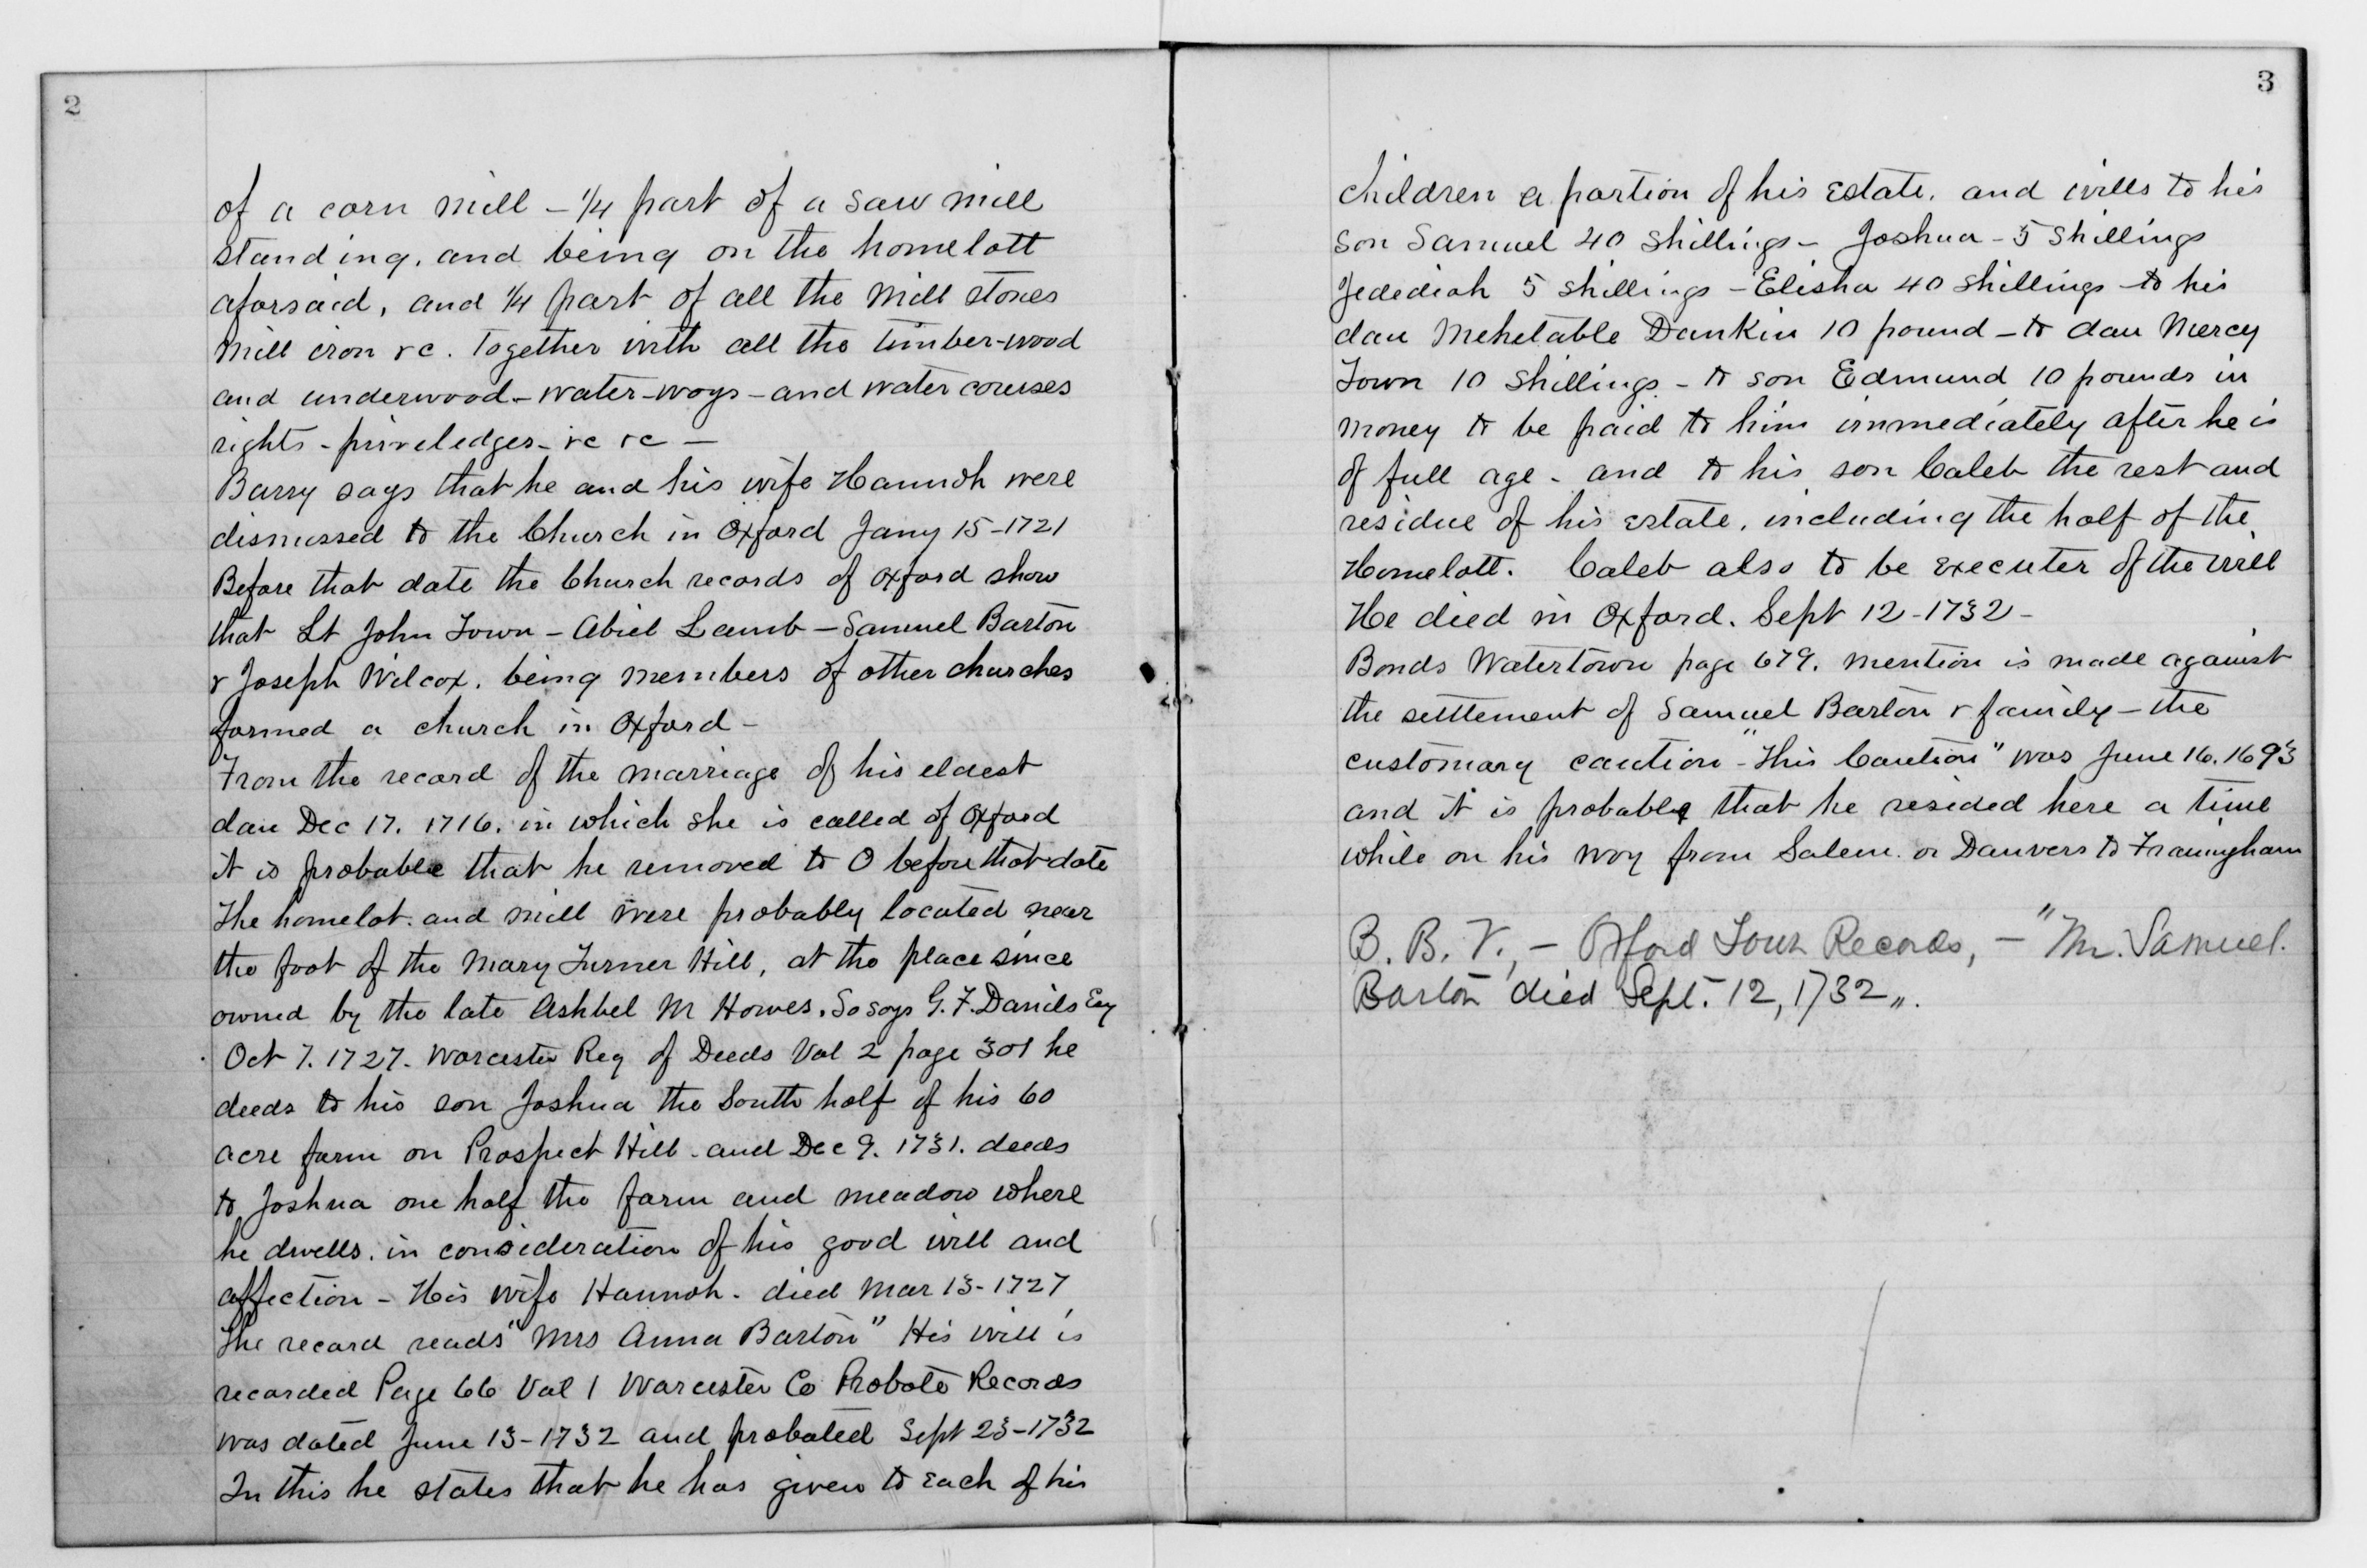 2
of a corn mill - 1/4 part of a saw mill
standing, and being on the homelott
aforsaid, and 1/4 part of all the Mill stones
Mill iron &c. Together with all the timber-wood
and underwood - water-ways - and water courses
rights - priveledges - &c &c -
Barry says that he and his wife Hannah were
dismissed to the Church in Oxford Jany 15-1721
Before that date the Church records of Oxford show
that Lt John Town - Abiel Lamb - Samuel Barton
& Joseph Wilcox. being members of other churches
formed a church in Oxford -
From the record of the marriage of his eldest
dau Dec 17. 1716. in which she is called of Oxford
it is probable that he removed to O before that date
The homelot. and mill were probably located near
the foot of the Mary Turner Hill, at the place since
owned by the late Ashbel M Howes. So says G. F. Daniels Esq
Oct 7. 1727. Worcester Reg of Deeds Vol 2 page 301 he
deeds to his son Joshua the South half of his 60
acre farm on Prospect Hill - and Dec 9. 1731. deeds
to Joshua one half the farm and meadow where
he dwells. in consideration of his good will and
affection - His wife Hannah - died Mar 13-1727
The record reads "Mrs Anna Barton" His will is
recorded Page 66 Vol 1 Worcester Co Probate Records
was dated June 13-1732 and probated Sept 23-1732
In this he states that he has given to each of his
3
children a portion of his Estate. and wills to his
son Samuel 40 shillings - Joshua - 5 shillings
Jedediah 5 shillings - Elisha 40 shillings - to his
dau Mehetable Dankin 10 pound - to dau Mercy
Town 10 shillings - to son Edmund 10 pounds in
money to be paid to him immediately after he is
of full age - and to his son Caleb the rest and
residue of his estate, including the half of the
Homelott. Caleb also to be executer of the will
He died in Oxford. Sept 12-1732 -
Bonds Watertown page 679. mention is made against
the settlement of Samuel Barton & family - the
customary caution - "This Caution" was June 16. 1693
and it is probable that he resided here a time
while on his way from Salem. or Danvers to Framingham
B. B. V., - Oxford Town Records, - "Mr. Samuel
Barton died Sept. 12, 1732".